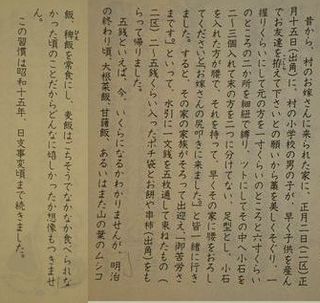 昔から、村のお嫁さんに来られた家に、正月二日(二区)正
月十五日(出角)に、村の小学校の男の子が、早う子供を産ん
でお友達を拵えて下さいとの願いから藁を美しくそぐり、一
握りくらいにして元の方を一寸くらいのところと六寸くらい
のところの二か所を細紐で縛り、ツトにしてその中へ小石を
二〜三個入れて末の方を二つに分けてない、足型とし、小石
を入れた方が腰で、それを持って、早くその家に腰をおろし
てください『お嫁さんの尻叩きに来ました』と皆一緒に行き
ました。すると、その家の家族がそろって出迎え、『御苦労さ
まです』といって、水引に一文銭を五枚通して束ねたもの(
二区)二〜五銭くらい入ったポチ袋とお餅や串柿(出角)をも
らって帰りました。
五銭といえば、今、いくらになるかわかりませんが、明治
の終わり頃、大根菜飯、甘藷飯、あるいはまた山の葉のムシコ
飯、稗飯を常食にし、麦飯はごちそうでなかなか食べられな
かった頃のことだからどんなに嬉しかったか想像もつきませ
ん。
この習慣は昭和十五年、日支事変頃まで続きました。